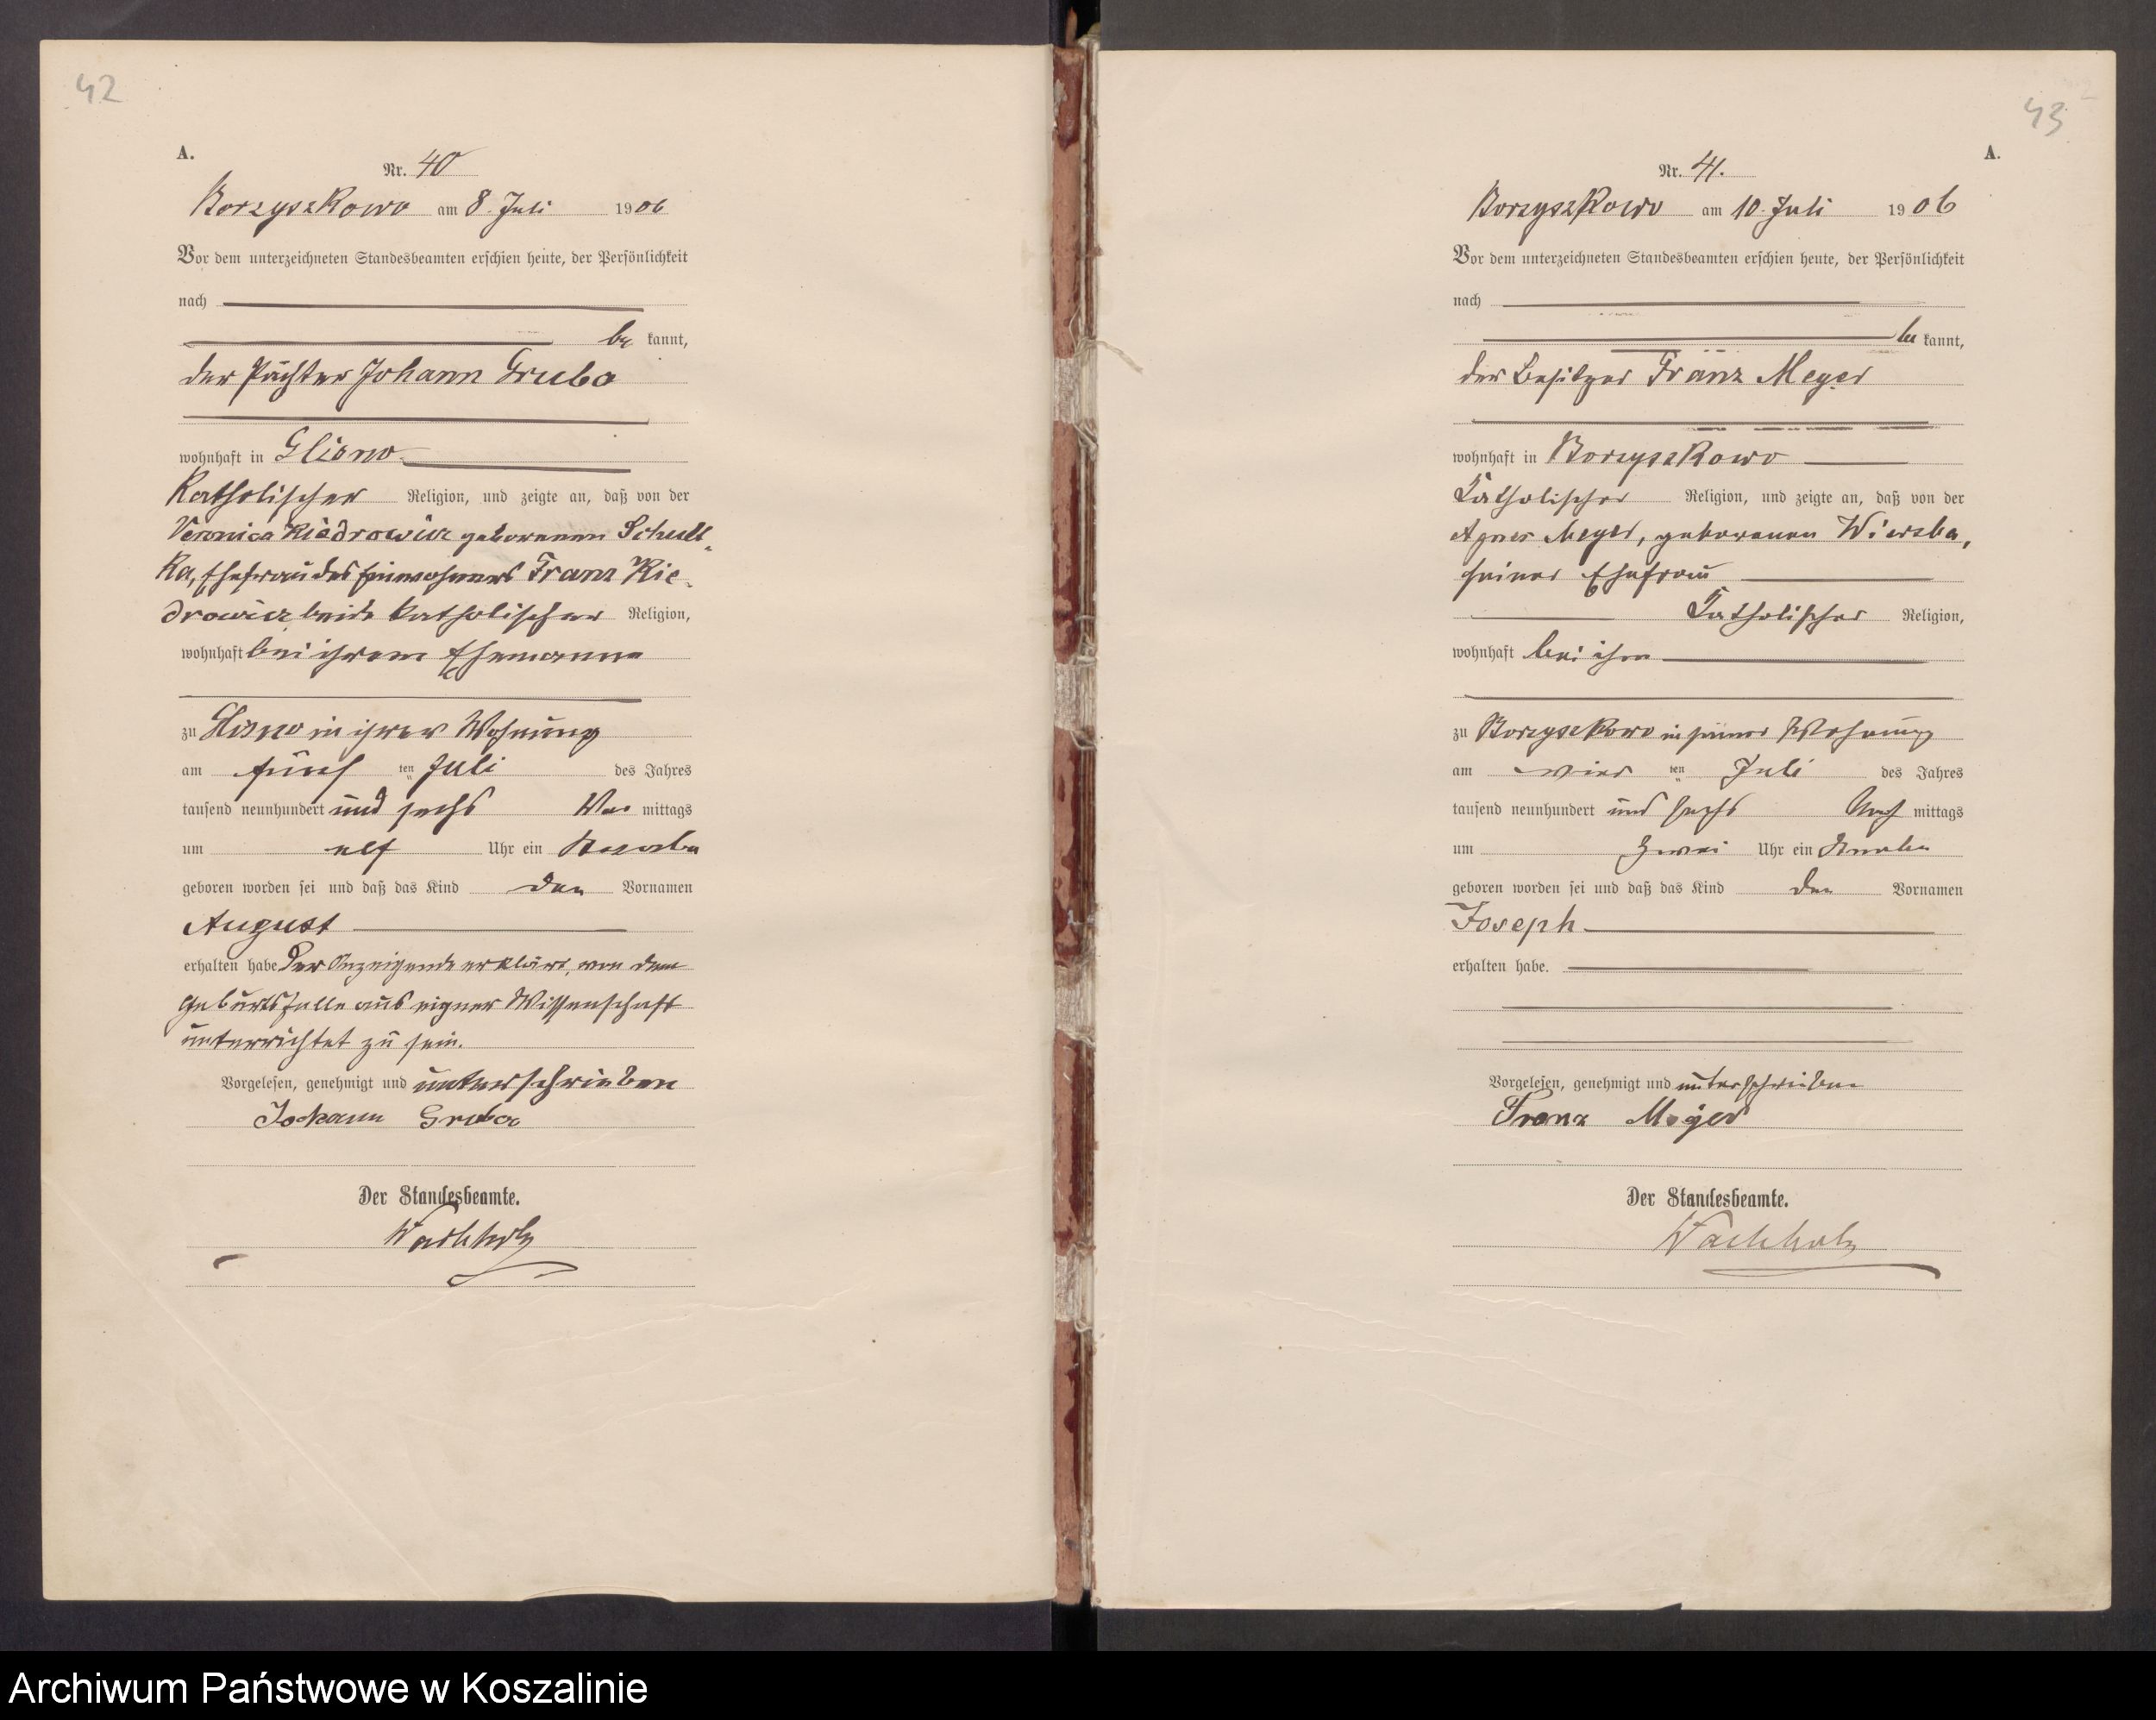 42
A.
Nr. 40
Borzyszkowo am 8. Juli 1906
Vor dem unterzeichneten Standesbeamten erschien heute, der Persönlichkeit
nach
be kannt,
der Pächter Johann Gruba
wohnhaft in Glisno
katholischer Religion, und zeigte an, daß von der
Veronica Kiedrowicz geborenen Schult-
ka, Ehefrau des Einwohners Franz Kie-
drowicz beide katholischer Religion,
wohnhaft bei ihrem Ehemanne
zu Glisno in ihrer Wohnung
am fünf ten Juli des Jahres
tausend neunhundert und sechs Vor mittags
um elf Uhr ein Knabe
geboren worden sei und daß das Kind den Vornamen
August
erhalten habe Der Anzeigende erklärt, von dem
Geburtsfalle aus eigner Wissenschaft
unterrichtet zu sein.
Vorgelesen, genehmigt und unterschrieben
Johann Gruba
Der Standesbeamte.
Wachholz
43
A.
Nr. 41.
Borzyszkowo am 10. Juli 1906
Vor dem unterzeichneten Standesbeamten erschien heute, der Persönlichkeit
nach
be kannt,
der Besitzer Franz Meyer
wohnhaft in Borzyszkowo
katholischer Religion, und zeigte an, daß von der
Agnes Meyer, geborenen Wiersba,
seiner Ehefrau
katholischer Religion,
wohnhaft bei ihm
zu Borzyszkowo in seiner Wohnung
am vier ten Juli des Jahres
tausend neunhundert und sechs Nach mittags
um zwei Uhr ein Knabe
geboren worden sei und daß das Kind den Vornamen
Joseph
erhalten habe.
Vorgelesen, genehmigt und unterschrieben
Franz Meyer
Der Standesbeamte.
Wachholz
Archiwum Państwowe w Koszalinie